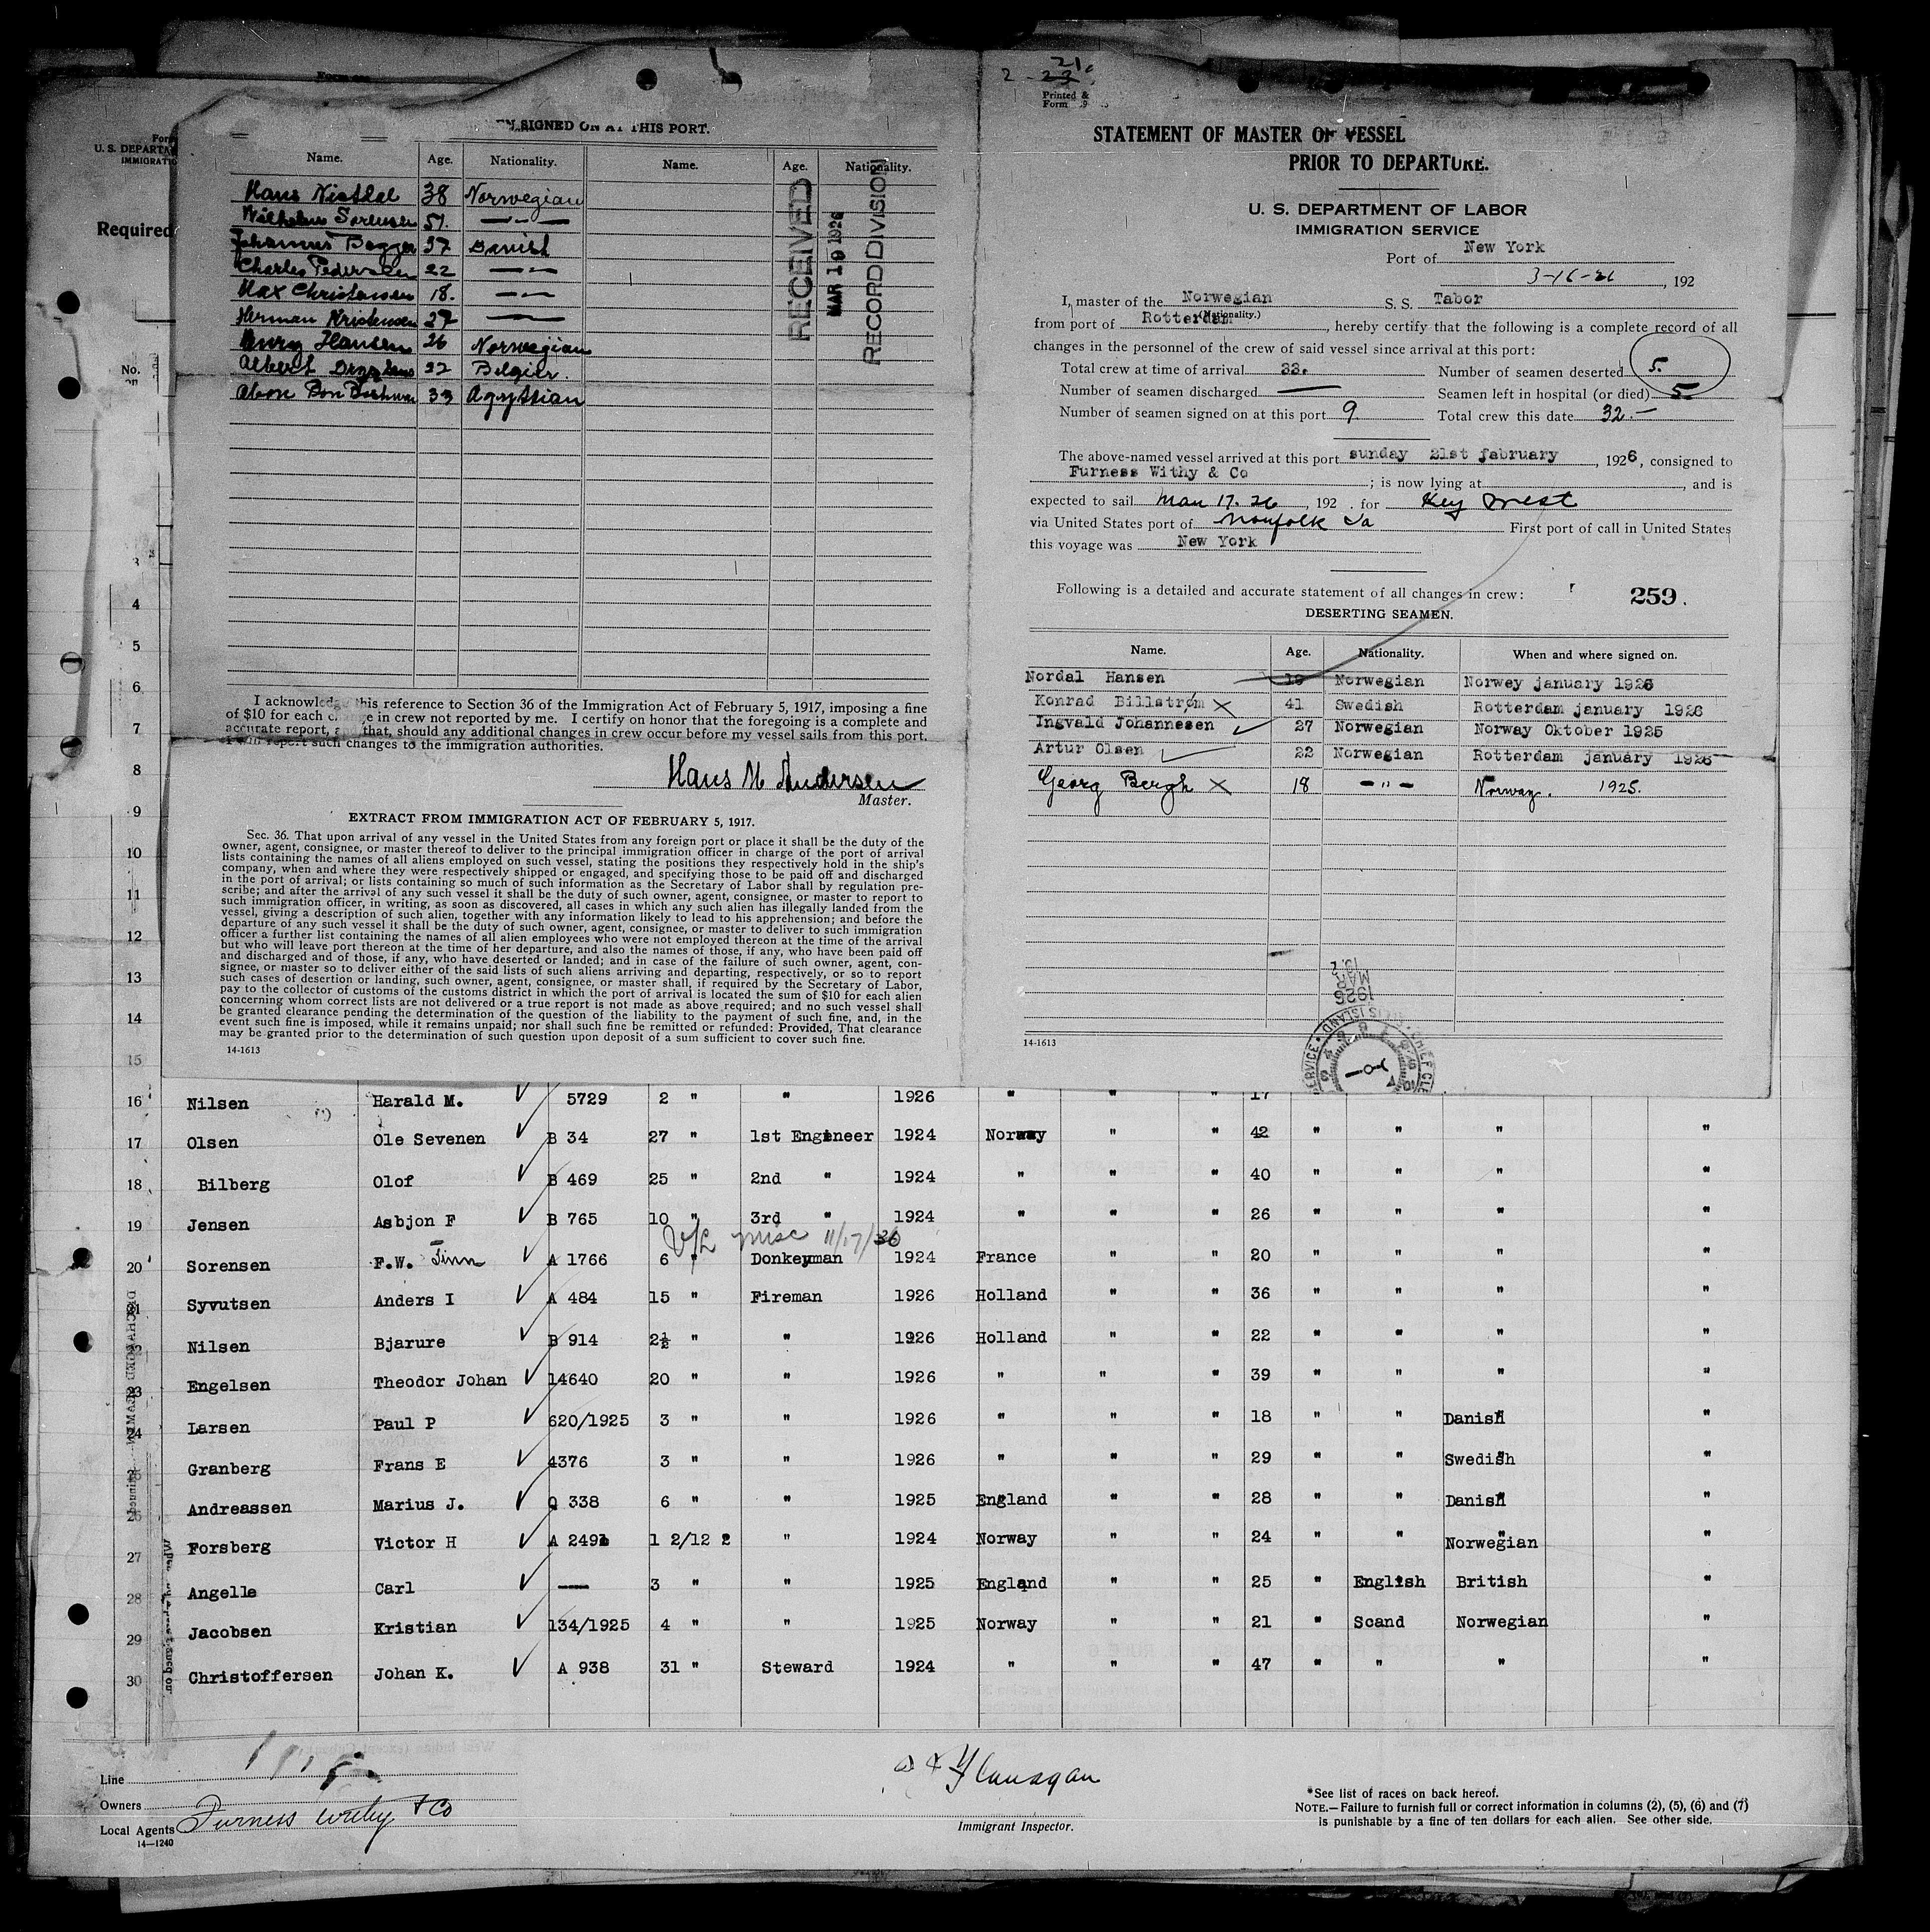 SIGNED ON AT THIS PORT.
Name. Age. Nationality. Name. Age. Nationality.
Hans 38 Norwegian
Wilhelm Sorensen 51. — " —
Johannes Bagger 37 Danish
Charles Pedersen 22 — " —
Max Christensen 18. — " —
Herman Kristensen 27 — " —
Hansen 26 Norwegian
Albert 22 Belgier.
33 Agyptian
RECEIVED
MAR 19 1926
RECORD DIVISION
I acknowledge this reference to Section 36 of the Immigration Act of February 5, 1917, imposing a fine
of $10 for each change in crew not reported by me. I certify on honor that the foregoing is a complete and
accurate report, and that, should any additional changes in crew occur before my vessel sails from this port.
report such changes to the immigration authorities.
Hans M Andersen
Master.
EXTRACT FROM IMMIGRATION ACT OF FEBRUARY 5, 1917.
Sec. 36. That upon arrival of any vessel in the United States from any foreign port or place it shall be the duty of the
owner, agent, consignee, or master thereof to deliver to the principal immigration officer in charge of the port of arrival
lists containing the names of all aliens employed on such vessel, stating the positions they respectively hold in the ship's
company, when and where they were respectively shipped or engaged, and specifying those to be paid off and discharged
in the port of arrival; or lists containing so much of such information as the Secretary of Labor shall by regulation pre-
scribe; and after the arrival of any such vessel it shall be the duty of such owner, agent, consignee, or master to report to
such immigration officer, in writing, as soon as discovered, all cases in which any such alien has illegally landed from the
vessel, giving a description of such alien, together with any information likely to lead to his apprehension; and before the
departure of any such vessel it shall be the duty of such owner, agent, consignee, or master to deliver to such immigration
officer a further list containing the names of all alien employees who were not employed thereon at the time of the arrival
but who will leave port thereon at the time of her departure, and also the names of those, if any, who have been paid off
and discharged and of those, if any, who have deserted or landed; and in case of the failure of such owner, agent, con-
signee, or master so to deliver either of the said lists of such aliens arriving and departing, respectively, or so to report
such cases of desertion or landing, such owner, agent, consignee, or master shall, if required by the Secretary of Labor,
pay to the collector of customs of the customs district in which the port of arrival is located the sum of $10 for each alien
concerning whom correct lists are not delivered or a true report is not made as above required; and no such vessel shall
be granted clearance pending the determination of the question of the liability to the payment of such fine, and, in the
event such fine is imposed, while it remains unpaid; nor shall such fine be remitted or refunded: Provided, That clearance
may be granted prior to the determination of such question upon deposit of a sum sufficient to cover such fine.
14-1613
2 - 23 21
Printed &
Form
STATEMENT OF MASTER OF VESSEL
PRIOR TO DEPARTURE.
U. S. DEPARTMENT OF LABOR
IMMIGRATION SERVICE
Port of New York
3-16-26, 192
I, master of the Norwegian S. S. Tabor
(Nationality.)
from port of Rotterdam, hereby certify that the following is a complete record of all
changes in the personnel of the crew of said vessel since arrival at this port:
Total crew at time of arrival 33. Number of seamen deserted 5.
Number of seamen discharged — Seamen left in hospital (or died) 5
Number of seamen signed on at this port 9 Total crew this date 32.—
The above-named vessel arrived at this port sunday 21st fabruary, 1926, consigned to
Furness Withy & Co; is now lying at , and is
expected to sail Mar 17. 26, 192 . for Key West
via United States port of Norfolk Va First port of call in United States
this voyage was New York
Following is a detailed and accurate statement of all changes in crew:
259.
DESERTING SEAMEN.
Name. Age. Nationality. When and where signed on.
Nordal Hansen 19 Norwegian Norwey january 1926
Konrad Billstrøm X 41 Swedish Rotterdam january 1926
Ingvald Johannesen ✓ 27 Norwegian Norway Oktober 1925
Artur Olsen ✓ 22 Norwegian Rotterdam january 1926
Georg Bergh X 18 — " — Norway. 1925.
14-1613
U. S. DEPARTM
IMMIGRATIO
Required
No.
on
3
4
5
6
7
8
9
10
11
12
13
14
15
16 Nilsen Harald M. ✓ 5729 2 " " 1926 " " " 17
17 Olsen Ole Sevenen ✓ B 34 27 " 1st Engineer 1924 Norway " " 42 " " " "
18 Bilberg Olof ✓ B 469 25 " 2nd " 1924 " " " 40 " " " "
19 Jensen Asbjon F ✓ B 765 10 " 3rd " 1924 " " " 26 " " " "
V/L misc 11/17/36
20 Sorensen F.W. Finn ✓ A 1766 6 " Donkeyman 1924 France " " 20 " " " "
21 Syvutsen Anders I ✓ A 484 15 " Fireman 1926 Holland " " 36 " " " "
22 Nilsen Bjarure ✓ B 914 2½ " " 1926 Holland " " 22 " " " "
23 Engelsen Theodor Johan ✓ 14640 20 " " 1926 " " " 39 " " " "
24 Larsen Paul P ✓ 620/1925 3 " " 1926 " " " 18 " " Danish "
25 Granberg Frans E ✓ 4376 3 " " 1926 " " " 29 " " Swedish "
26 Andreassen Marius J. ✓ Q 338 6 " " 1925 England " " 28 " " Danish "
27 Forsberg Victor H ✓ A 2491 1 2/12 2 " 1924 Norway " " 24 " " Norwegian "
28 Angelle Carl ✓ — 3 " " 1925 England " " 25 " English British "
29 Jacobsen Kristian ✓ 134/1925 4 " " 1925 Norway " " 21 " Scand Norwegian "
30 Christoffersen Johan K. ✓ A 938 31 " Steward 1924 " " " 47 " " " "
Line
Owners
Local Agents Furness Withy & Co
14—1240
Flanagan
Immigrant Inspector.
*See list of races on back hereof.
NOTE.—Failure to furnish full or correct information in columns (2), (5), (6) and (7)
is punishable by a fine of ten dollars for each alien. See other side.